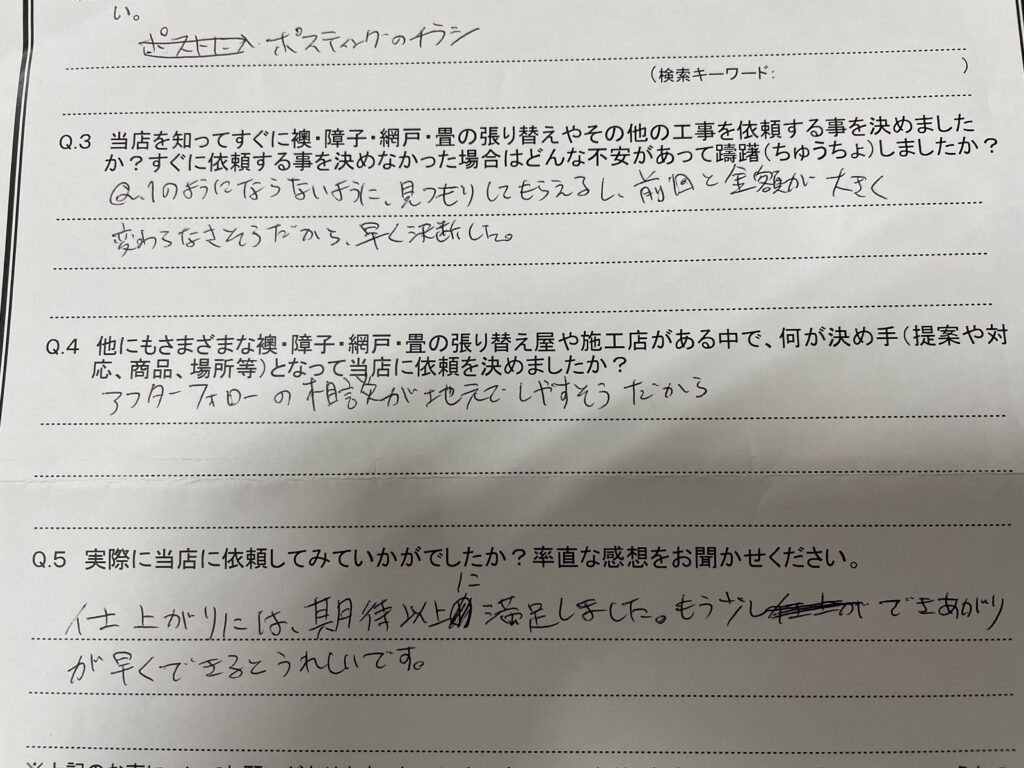 い。
ポスティングのチラシ
（検索キーワード：　　　　　　　　　　）
Q.3 当店を知ってすぐに襖・障子・網戸・畳の張り替えやその他の工事を依頼する事を決めました
か？すぐに依頼する事を決めなかった場合はどんな不安があって躊躇（ちゅうちょ）しましたか？
Q.1のようにならないように、見つもりしてもらえるし、前回と金額が大きく
変わらなさそうだから、早く決断した。
Q.4 他にもさまざまな襖・障子・網戸・畳の張り替え屋や施工店がある中で、何が決め手（提案や対
応、商品、場所等）となって当店に依頼を決めましたか？
アフターフォローの相談が地元でしやすそうだから
Q.5 実際に当店に依頼してみていかがでしたか？率直な感想をお聞かせください。
仕上がりには、期待以上に満足しました。もう少しできあがり
が早くできるとうれしいです。